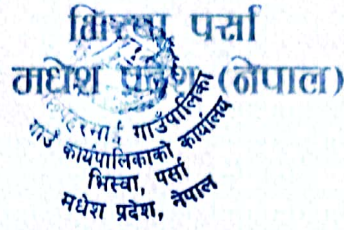 भिस्वा, पर्सा
मधेश प्रदेश (नेपाल)
गाउँपालिका
गाउँ कार्यपालिकाको कार्यालय
भिस्वा, पर्सा
मधेश प्रदेश, नेपाल